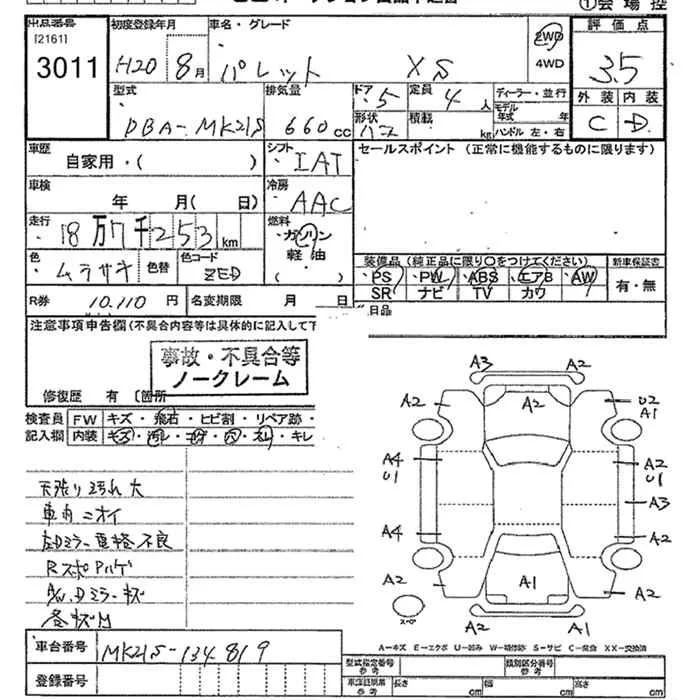 ①会場控
出品番号 初度登録年月 車名・グレード 評価点
[2161]
3011 H20 8月 パレット XS 2WD 4WD 3.5
型式 排気量 ドア 5 定員 4人 ディーラー・並行 外装 内装
DBA-MK21S 660cc 形状 積載 kg モデル年式 年 ハンドル 左・右 C D
車歴 自家用・( ) シフト IAT セールスポイント (正常に機能するものに限ります)
車検 年 月( 日) 冷房 AAC
走行 18万7千253km 燃料 ガソリン
軽油
( )
色 ムラサキ 色替 色コード ZED
装備品 (純正品に限り○をつけてください) 新車保証書
PS PW ABS エアB AW 有・無
SR ナビ TV カワ
R券 10,110円 名変期限 月 日
注意事項申告欄(不具合内容等は具体的に記入して下
事故・不具合等
ノークレーム
修復歴 有 〔箇所
検査員 FW キズ・飛石・ヒビ割・リペア跡・
記入欄 内装 キズ・汚レ・コゲ・穴・スレ・キレ
天張り汚れ大
車内ニオイ
右Dミラー電格不良
RスポハゲA/W、Dミラーキズ
A3 A2
A2 A2 U2
A1
A4 A2
U1 U1
A3
A4
A2 A1 A2
A2 A1
スペア
A=キズ E=エクボ U=凹み W=補修跡 S=サビ C=腐食 XX=交換済
車台番号 MK21S-134819
登録番号
型式指定番号 参考 類別区分番号 参考
車庫証明用 参考 長さ cm 幅 cm 高さ cm